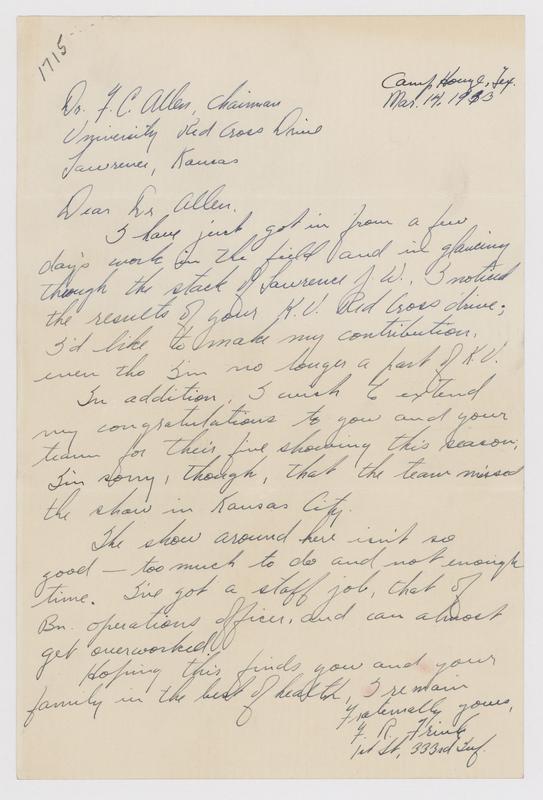 1715
Camp Howze, Tex.
Mar. 14, 1943
Dr. F. C. Allen, Chairman
University Red Cross Drive
Lawrence, Kansas
Dear Dr. Allen.
I have just got in from a few
days work in the field and in glancing
through the stack of Lawrence J. W., I noticed
the results of your K. U. Red Cross drive;
I'd like to make my contribution,
even tho I'm no longer a part of K. U.
In addition, I wish to extend
my congratulations to you and your
team for their fine showing this season;
I'm sorry, though, that the team missed
the show in Kansas City.
The show around here isn't so
good — too much to do and not enough
time. I've got a staff job, that of
Bn. operations officer, and can almost
get overworked!
Hoping this finds you and your
family in the best of health, I remain
Fraternally yours,
F. R.
1st Lt, 333rd Inf.